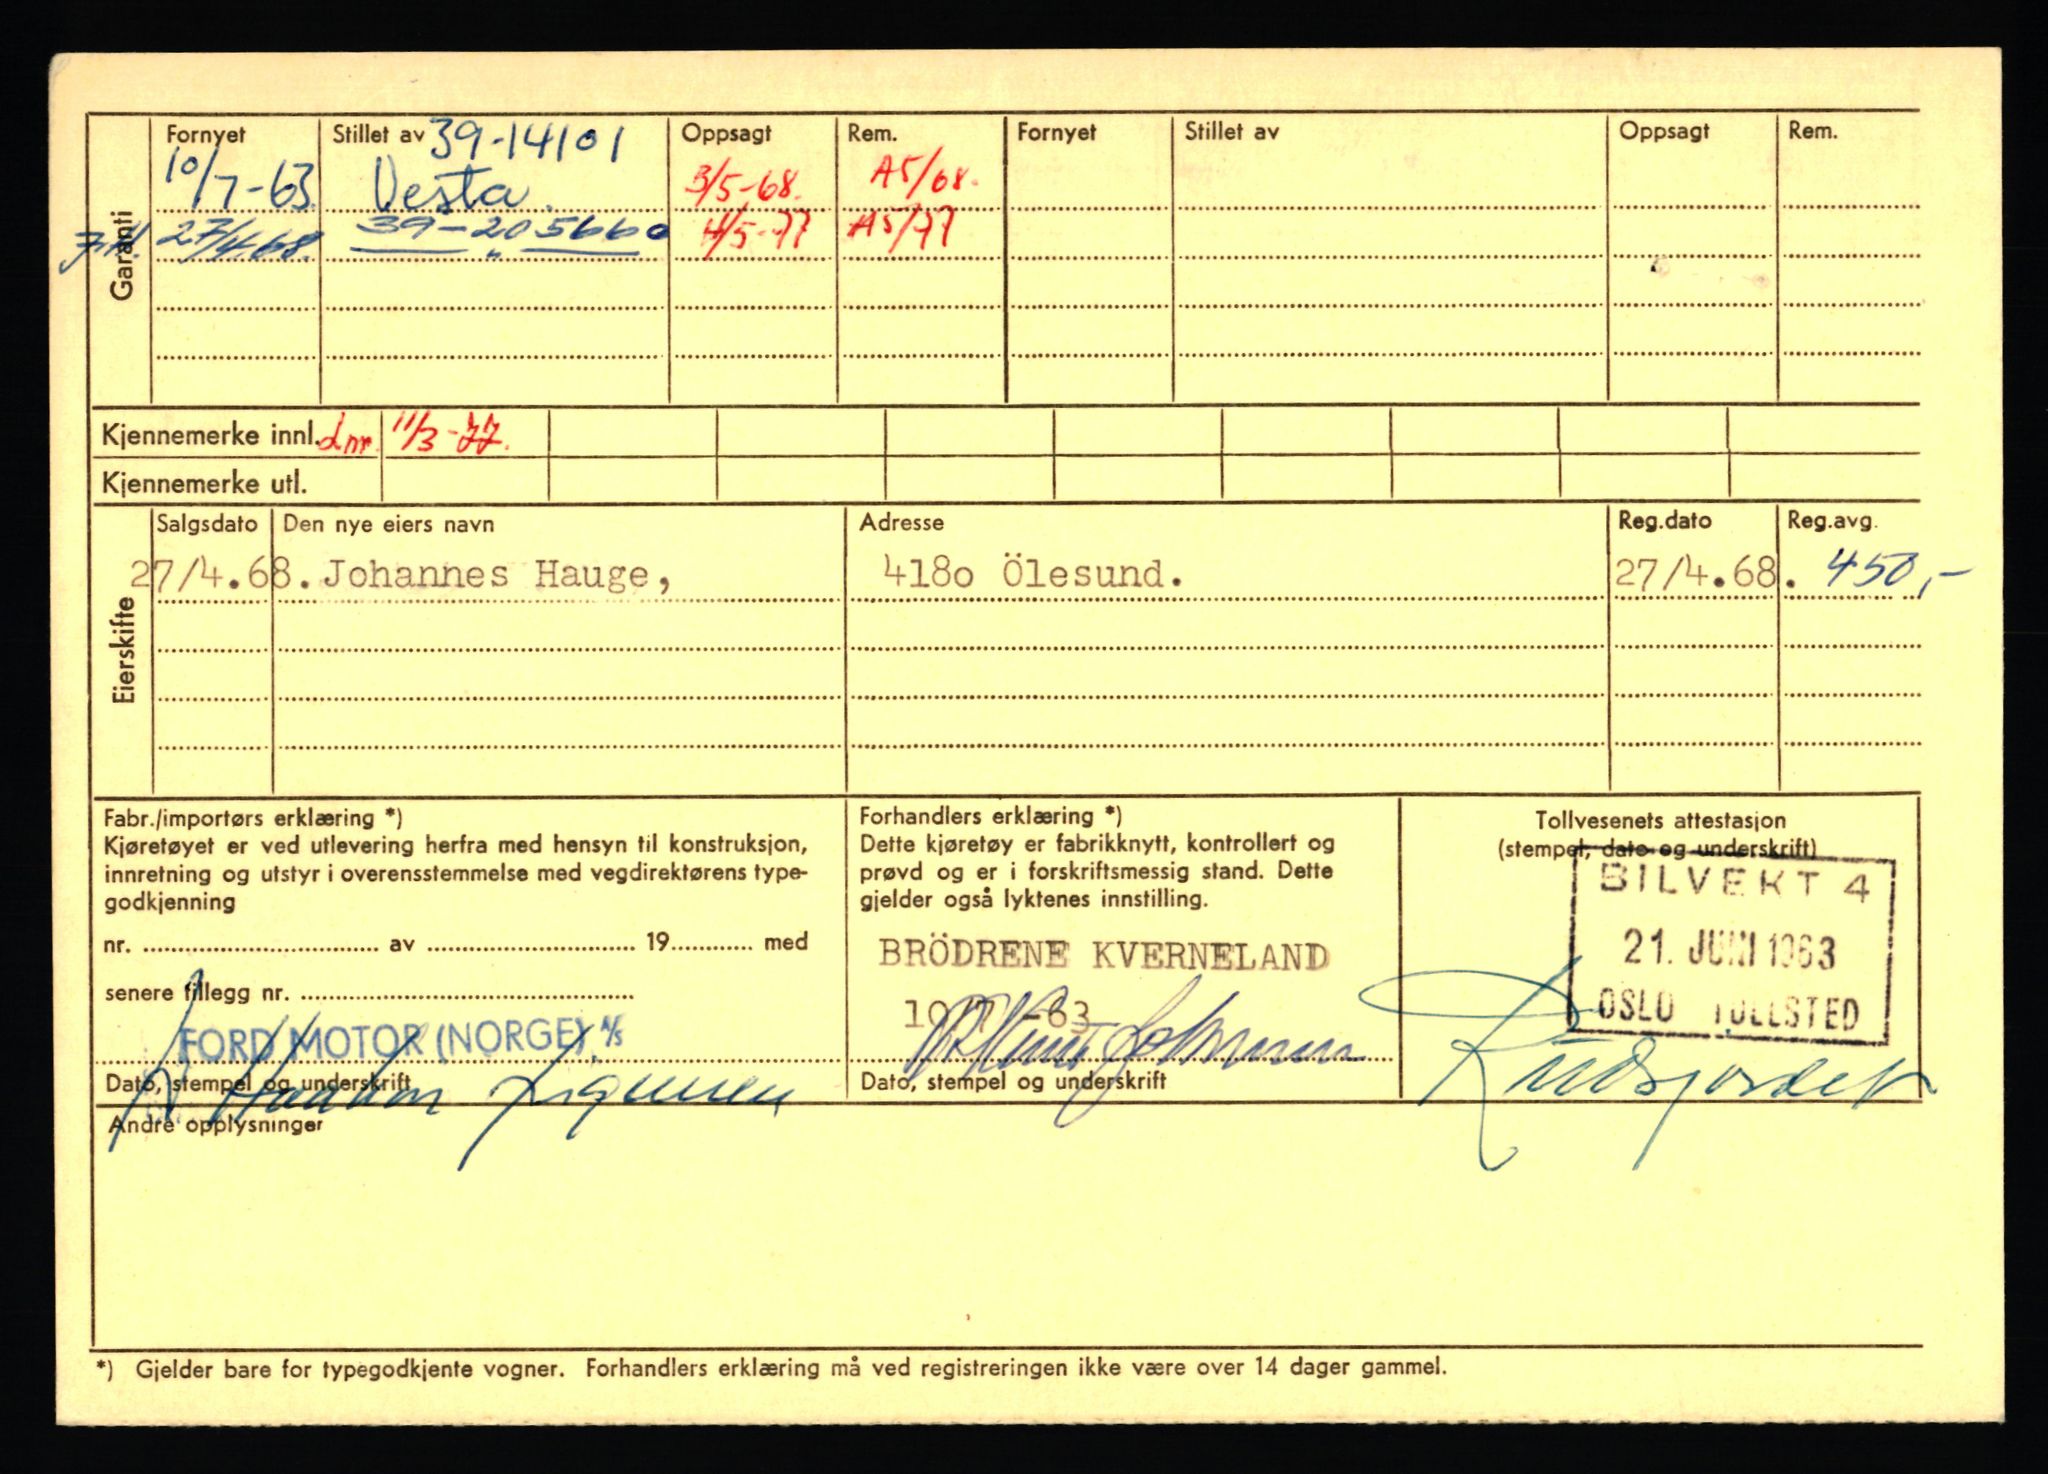 Garanti
Fornyet Stillet av 39-14101 Oppsagt Rem. Fornyet Stillet av Oppsagt Rem.
10/7-63. Vesta. 3/5-68. A5/68.
27/4.68. 39-205660 4/5-77 A5/77
"
Kjennemerke innl. Lnr. 11/3-77.
Kjennemerke utl.
Eierskifte
Salgsdato Den nye eiers navn Adresse Reg.dato Reg.avg.
27/4.68. Johannes Hauge, 4180 Ölesund. 27/4.68. 450,-
Fabr./importørs erklæring *)
Kjøretøyet er ved utlevering herfra med hensyn til konstruksjon,
innretning og utstyr i overensstemmelse med vegdirektørens type-
godkjenning
nr. av 19 med
senere tillegg nr.
FORD MOTOR (NORGE) A/S
Dato, stempel og underskrift
Forhandlers erklæring *)
Dette kjøretøy er fabrikknytt, kontrollert og
prøvd og er i forskriftsmessig stand. Dette
gjelder også lyktenes innstilling.
BRÖDRENE KVERNELAND
10/7 -63
Dato, stempel og underskrift
Tollvesenets attestasjon
(stempel, dato og underskrift)
BILVEKT 4
21. JUNI 1963
OSLO TOLLSTED
Andre opplysninger
*) Gjelder bare for typegodkjente vogner. Forhandlers erklæring må ved registreringen ikke være over 14 dager gammel.